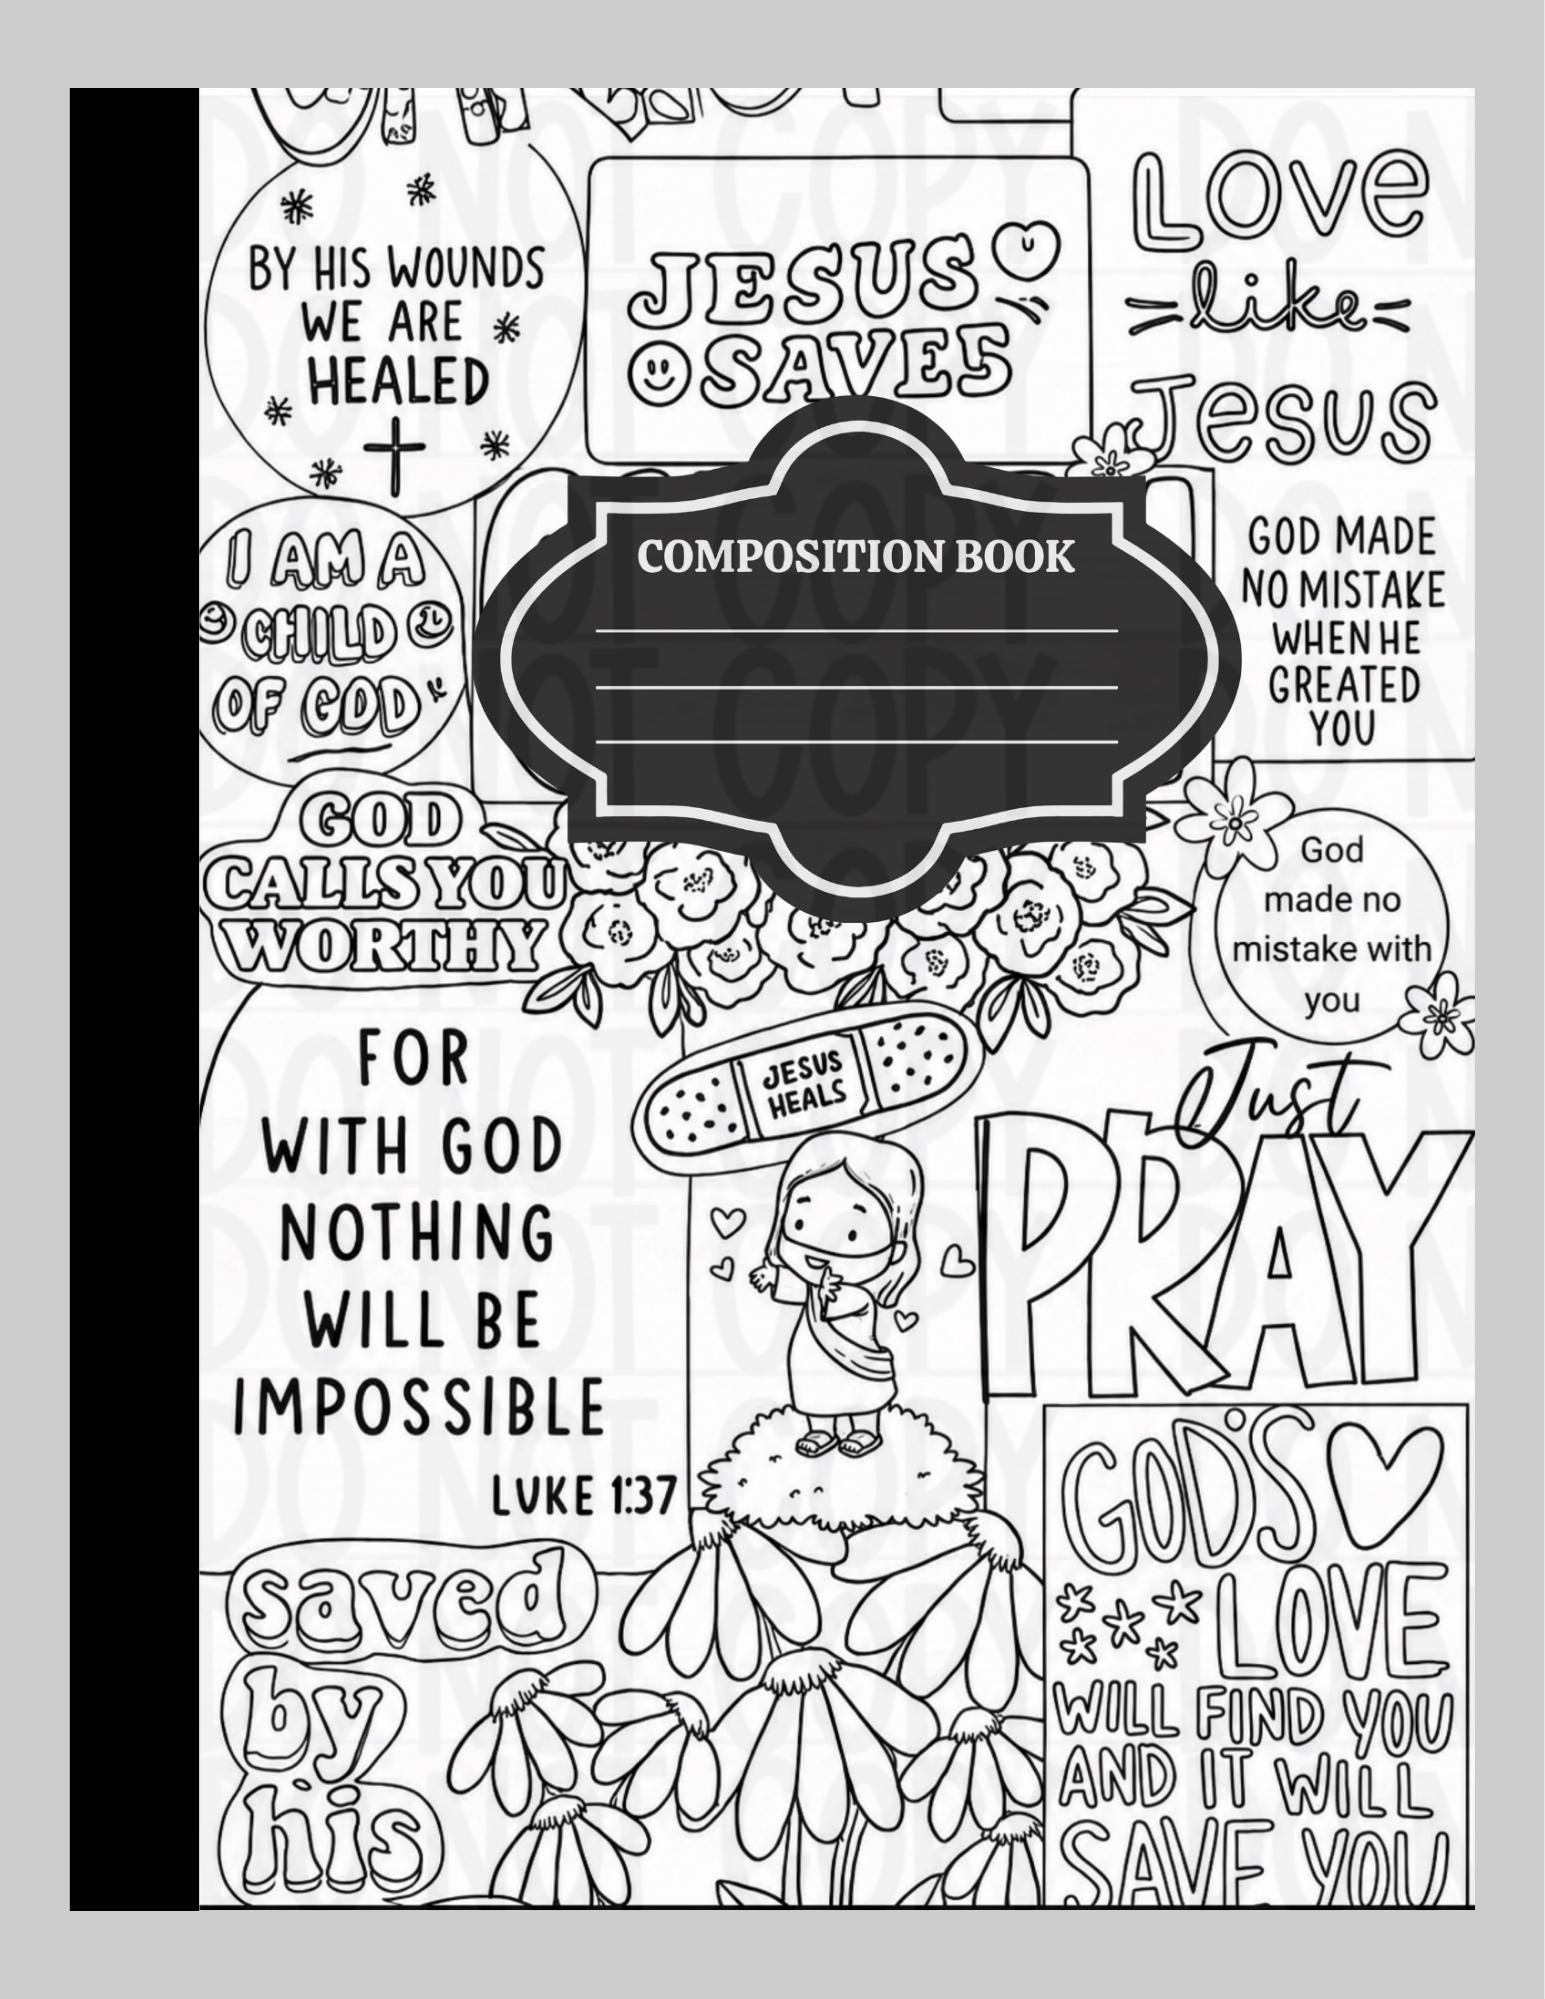 BY HIS WOUNDS
WE ARE
HEALED
JESUS
SAVES
Love
like
Jesus
I AM A
CHILD
OF GOD
COMPOSITION BOOK
GOD MADE
NO MISTAKE
WHEN HE
GREATED
YOU
GOD
CALLS YOU
WORTHY
God
made no
mistake with
you
FOR
WITH GOD
NOTHING
WILL BE
IMPOSSIBLE
LUKE 1:37
JESUS
HEALS
Just
PRAY
saved
by
his
GOD'S
LOVE
WILL FIND YOU
AND IT WILL
SAVE YOU
DO NOT COPY